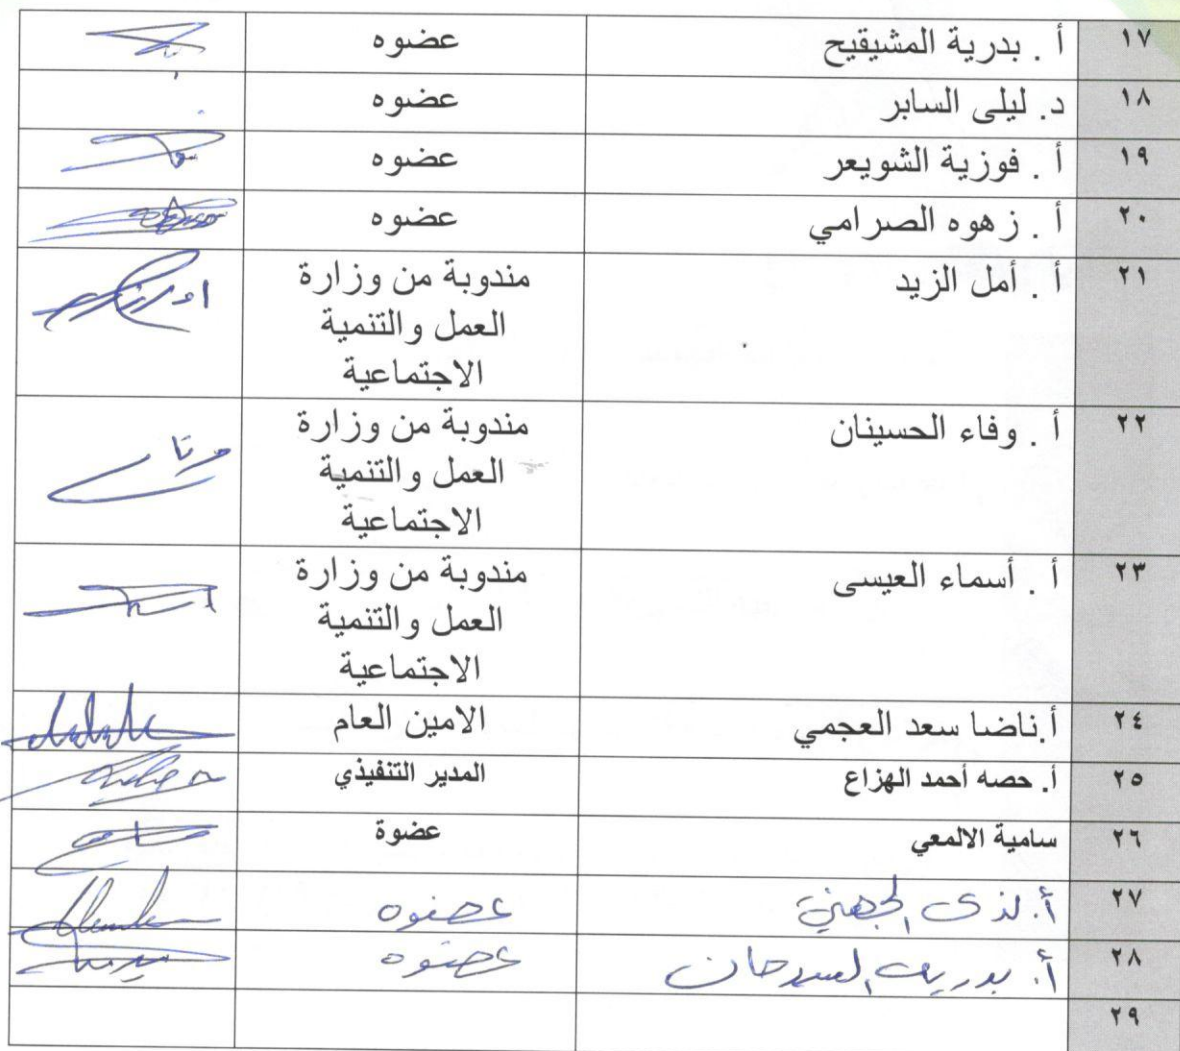 ١٧ أ . بدرية المشيقيح عضوه
١٨ د. ليلى السابر عضوه
١٩ أ . فوزية الشويعر عضوه
٢٠ أ . زهوه الصرامي عضوه
٢١ أ . أمل الزيد مندوبة من وزارة
العمل والتنمية
الاجتماعية
٢٢ أ . وفاء الحسينان مندوبة من وزارة
العمل والتنمية
الاجتماعية
٢٣ أ . أسماء العيسى مندوبة من وزارة
العمل والتنمية
الاجتماعية
٢٤ أ.ناضا سعد العجمي الامين العام
٢٥ أ. حصه أحمد الهزاع المدير التنفيذي
٢٦ سامية الالمعي عضوة
٢٧ أ. الجهني عضوه
٢٨ أ. بدرية السرحان عضوه
٢٩